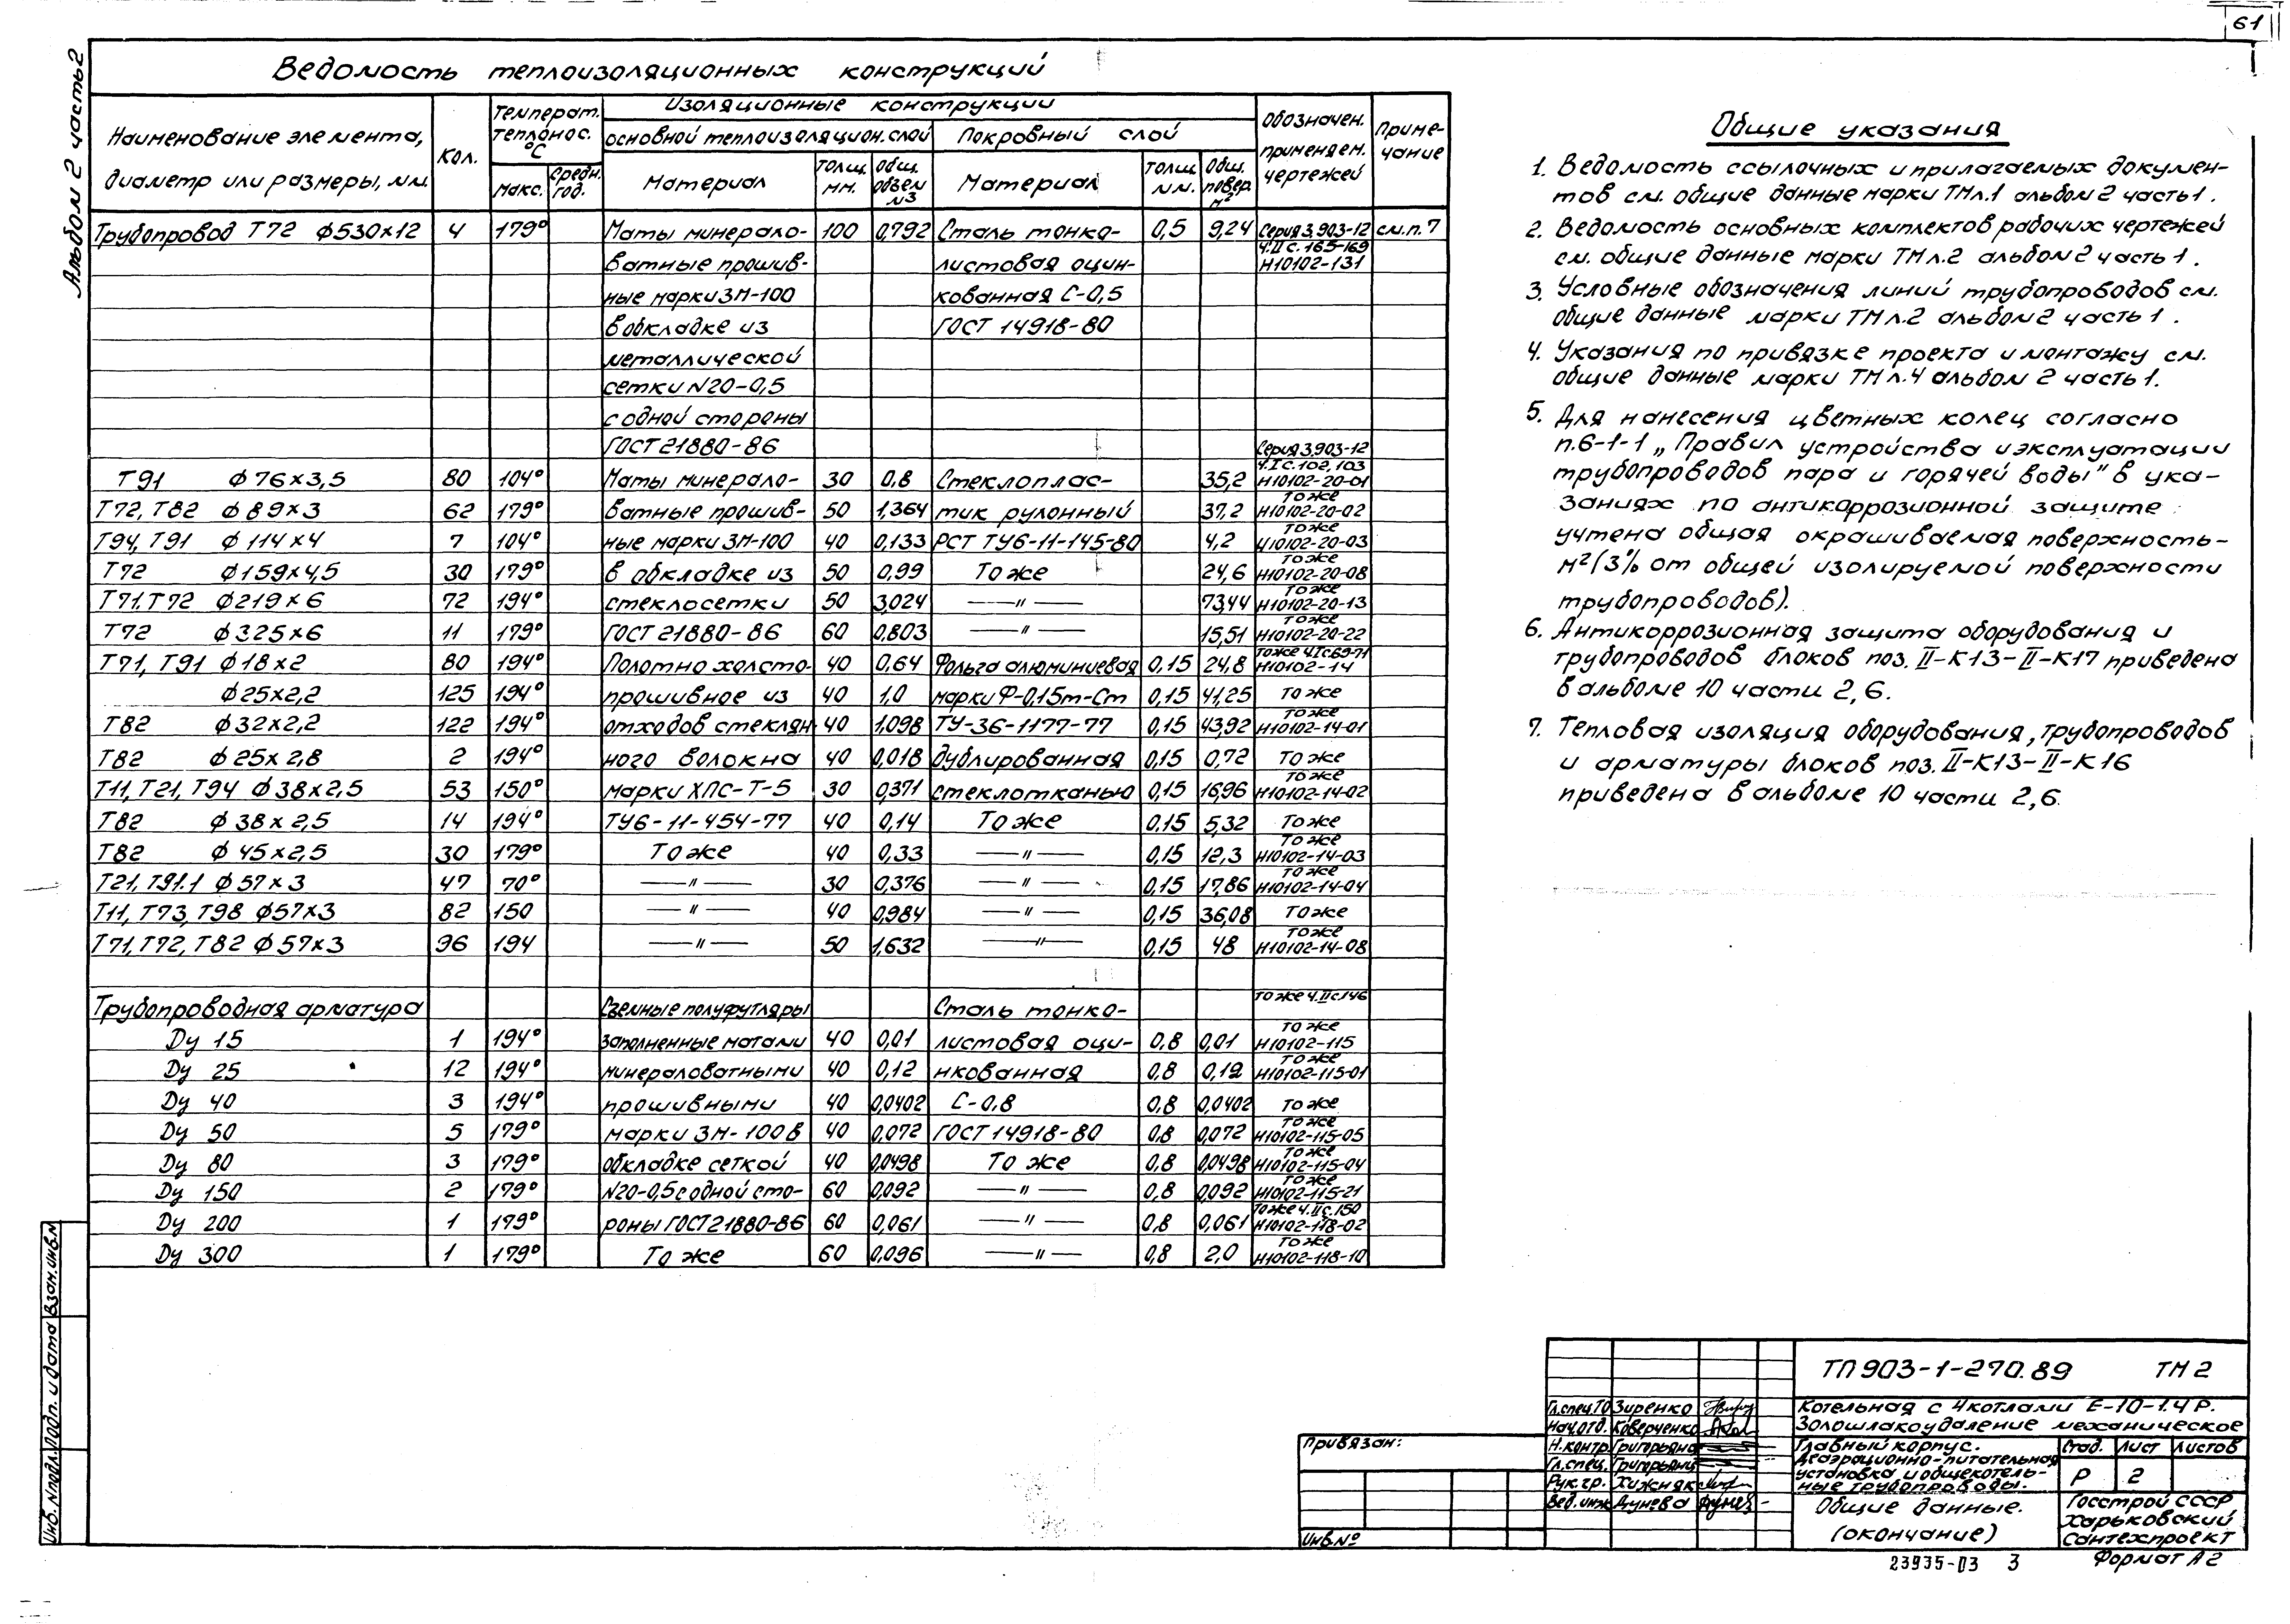 61
Альбом 2 часть 2
Ведомость теплоизоляционных конструкций
Наименование элемента, диаметр или размеры, мм.
Кол.
Температ. теплонос. °С
макс.
средн. год.
Изоляционные конструкции
основной теплоизоляцион. слой
Покровный слой
Материал
Толщ. мм.
Общ. объем м3
Материал
Толщ. мм.
Общ. повер. м2
Обозначен. применяем. чертежей
Примечание
Трубопровод Т72 ф530х12 4 179° Маты минерало- 100 0,792 Сталь тонко- 0,5 9,24 Серия 3.903-12 см.п.7
ч.II с.165-169
ватные прошив- листовая оцин- Н10102-131
ные марки ЗМ-100 кованная С-0,5
в обкладке из ГОСТ 14918-80
металлической
сетки N20-0,5
с одной стороны
ГОСТ 21880-86 Серия 3.903-12
ч.I с.102,103
Т91 ф76х3,5 80 104° Маты минерало- 30 0,8 Стеклоплас- 35,2 Н10102-20-01
Т72, Т82 ф89х3 62 179° ватные прошив- 50 1,364 тик рулонный 37,2 То же Н10102-20-02
Т94, Т91 ф114х4 7 104° ные марки ЗМ-100 40 0,133 РСТ ТУ6-11-145-80 4,2 То же Н10102-20-03
Т72 ф159х4,5 30 179° в обкладке из 50 0,99 То же 24,6 То же Н10102-20-08
Т71.Т72 ф219х6 72 194° стеклосетки 50 3,024 —〃— 73,44 То же Н10102-20-13
Т72 ф325х6 11 179° ГОСТ 21880-86 60 0,803 —〃— 15,51 То же Н10102-20-22
Т71, Т91 ф18х2 80 194° Полотно холсто- 40 0,64 Фольга алюминиевая 0,15 24,8 То же ч.I с69-71 Н10102-14
ф25х2,2 125 194° прошивное из 40 1,0 марки Ф-0,15т-Ст 0,15 41,25 То же
Т82 ф32х2,2 122 194° отходов стеклян- 40 1,098 ТУ-36-1177-77 0,15 43,92 То же Н10102-14-01
Т82 ф25х2,8 2 194° ного волокна 40 0,018 дублированная 0,15 0,72 То же
Т11, Т21, Т94 ф38х2,5 53 150° марки ХПС-Т-5 30 0,371 стеклотканью 0,15 16,96 То же Н10102-14-02
Т82 ф38х2,5 14 194° ТУ6-11-454-77 40 0,14 То же 0,15 5,32 То же
Т82 ф45х2,5 30 179° То же 40 0,33 —〃— 0,15 12,3 То же Н10102-14-03
Т21, Т91.1 ф57х3 47 70° —〃— 30 0,376 —〃— 0,15 17,86 То же Н10102-14-04
Т11, Т73, Т98 ф57х3 82 150 —〃— 40 0,984 —〃— 0,15 36,08 То же
Т71, Т72, Т82 ф57х3 96 194 —〃— 50 1,632 —〃— 0,15 48 То же Н10102-14-08
Трубопроводная арматура Съемные полуфутляры Сталь тонко- То же ч.II с.146
Ду 15 1 194° заполненные матами 40 0,01 листовая оци- 0,8 0,01 То же Н10102-115
Ду 25 12 194° минераловатными 40 0,12 нкованная 0,8 0,12 То же Н10102-115-01
Ду 40 3 194° прошивными 40 0,0402 С-0,8 0,8 0,0402 То же
Ду 50 5 179° марки ЗМ-100 в 40 0,072 ГОСТ 14918-80 0,8 0,072 То же Н10102-115-05
Ду 80 3 179° обкладке сеткой 40 0,0498 То же 0,8 0,0498 То же Н10102-115-04
Ду 150 2 179° N20-0,5 с одной сто- 60 0,092 —〃— 0,8 0,092 То же Н10102-115-21
Ду 200 1 179° роны ГОСТ 21880-86 60 0,061 —〃— 0,8 0,061 То же ч.II с.150 Н10102-118-02
Ду 300 1 179° То же 60 0,096 —〃— 0,8 2,0 То же Н10102-118-10
Общие указания
1. Ведомость ссылочных и прилагаемых докумен-
тов см. общие данные марки ТМ л.1 альбом 2 часть 1.
2. Ведомость основных комплектов рабочих чертежей
см. общие данные марки ТМ л.2 альбом 2 часть 1.
3. Условные обозначения линий трубопроводов см.
общие данные марки ТМ л.2 альбом 2 часть 1.
4. Указания по привязке проекта и монтажу см.
общие данные марки ТМ л.4 альбом 2 часть 1.
5. Для нанесения цветных колец согласно
п.6-1-1 „Правил устройства и эксплуатации
трубопроводов пара и горячей воды" в ука-
заниях по антикоррозионной защите
учтена общая окрашиваемая поверхность-
м2 (3% от общей изолируемой поверхности
трубопроводов).
6. Антикоррозионная защита оборудования и
трубопроводов блоков поз. II-К13-II-К17 приведена
в альбоме 10 части 2,6.
7. Тепловая изоляция оборудования, трубопроводов
и арматуры блоков поз. II-К13-II-К16
приведена в альбоме 10 части 2,6.
Инв.N подл. Подп. и дата Взам.инв.N
Привязан:
Инв.№
Гл.спец.ТО Зиренко
Нач.отд. Коверченко
Н.контр. Григорьянц
Гл.спец. Григорьянц
Рук.гр. Хижняк
Вед.инж. Дунева
ТП 903-1-270.89 ТМ 2
Котельная с 4 котлами Е-10-1.4 Р.
Золошлакоудаление механическое
Главный корпус.
Деаэрационно-питательная
установка и общекотель-
ные трубопроводы.
Стад. Лист Листов
Р 2
Общие данные.
(окончание)
Госстрой СССР
Харьковский
Сантехпроект
23935-03 3 Формат А2